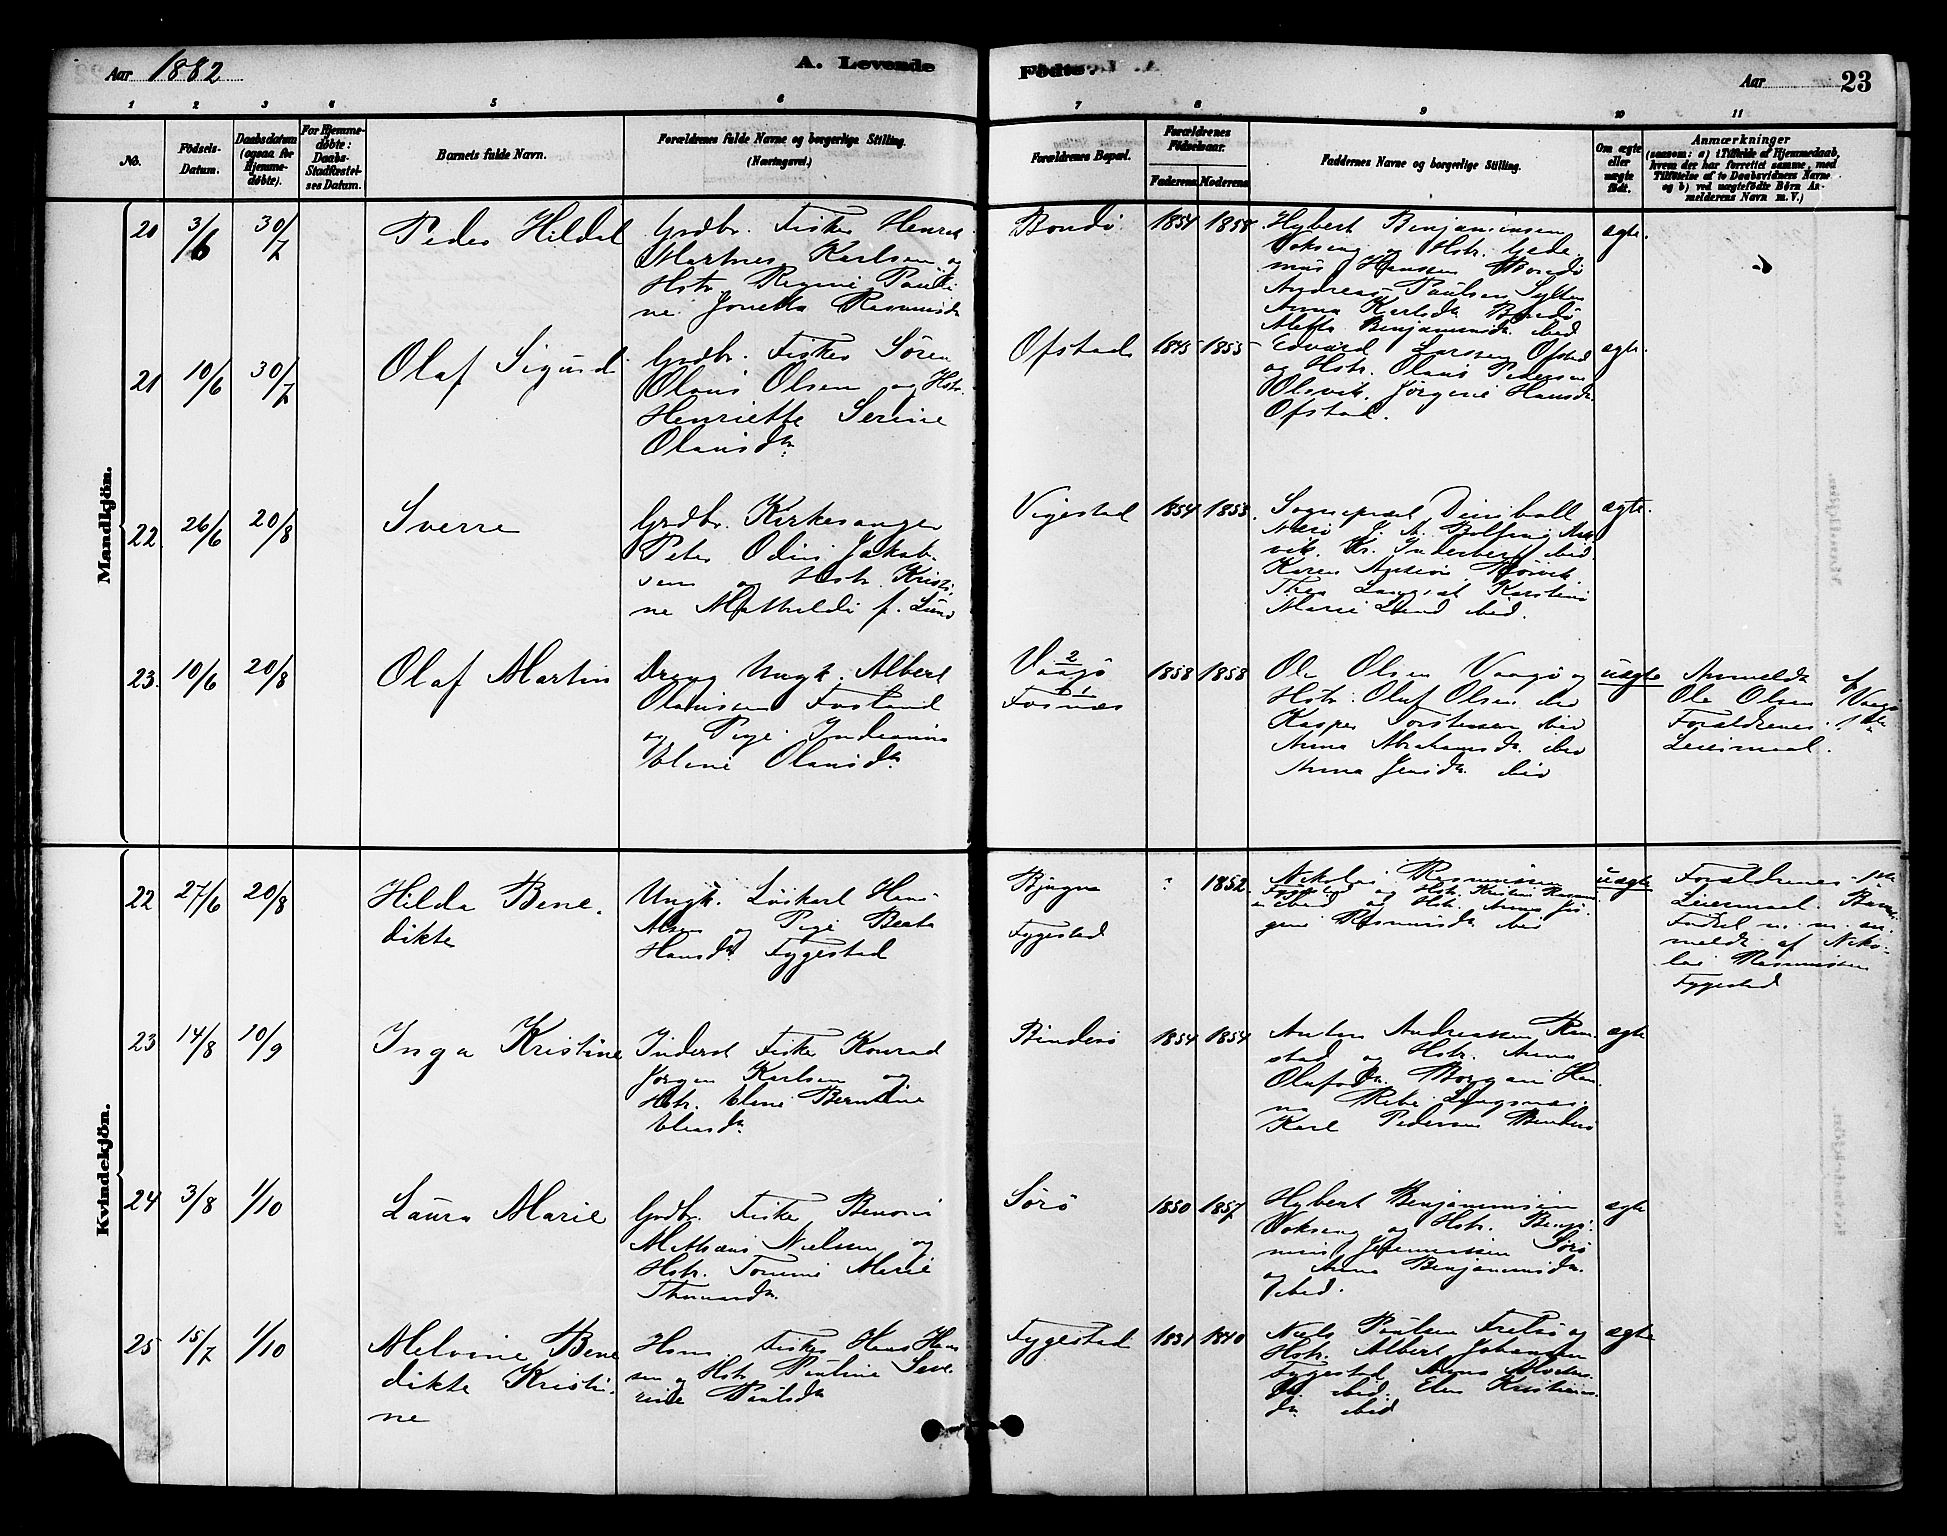 Aar 1882
A. Levende
Födte.
Aar
23
1 2 3 4 5 6 7 8 9 10 11
No.
Födsels-
Datum.
Daabsdatum
(ogsaa for
Hjemme-
døbte).
For Hjemme-
døbte:
Daabs-
Stadfæstel-
ses Datum.
Barnets fulde Navn.
Forældrenes fulde Navne og borgerlige Stilling.
(Næringsvei.)
Forældrenes Bopæl.
Forældrenes
Födselsaar.
Faderens Moderens
Faddernes Navne og borgerlige Stilling.
Om ægte
eller
uægte
født.
Anmærkninger
(saasom: a) i Tilfælde af Hjemmedaab,
hvem der har forrettet samme, med
Tilföielse af to Daabsvidners Navne
og b) ved uægtefödte Börn An-
melderens Navn m. V.)
Mandkjön.
20 3/6 30/7
Peder Hildal
Grdbr. Fisker Henrik
Martines Karlsen og
Hstr. Regine Pauli
ne Jonetta Rasmusd.
Bondö
1854 1858
Hybert Benjaminsen
Vokseng og Hstr.
Andreas Paulsen
Anna Karlsd. Bondö
Benjaminsd. ibid
ægte.
21 10/6 30/7
Olaf Sigurd
Grdbr. Fisker Sören
Olaus Olsen og Hstr.
Henriette Serine
Olausd.
Ofstad
1845 1855
Edvard Larssen Ofstad
og Hstr. Olaus Pedersen
Olsvik. Jörgine Hansd.
Ofstad.
ægte.
22. 26/6 20/8
Sverre
Grdbr. Kirkesanger
Peter Odin Jakob-
sen og Hstr. Kristi-
ne Mathilde f. Lund
Vigestad
1854 1853.
Sognepræst
Marie Lund ibid.
ægte.
23. 10/6 20/8
Olaf Martin
Dreng Ungk. Albert
Olausen Fosland
og Pige Indianna
Eline Olausd.
Vaagö
Fosnæs
1858 1858
Ole Olsen Vaagö og
Hstr. Oluf Olsen ibid
Kasper Torstensen ibid
Anna Abrahamsd. ibid
Anna Jensd. ibid
uægte
Anmeldt af
Ole Olsen Vaagö
Forældrenes 1ste
Leiermaal.
Kvindekjön.
22 27/6 20/8
Hilda Bene-
dikte
Ungk. Löskarl Hans
og Pige Beate
Hansd. Fyggestad
Bjugn
Fyggestad
? 1852.
Nikolai Rasmussen
Fyggestad og Hstr.
ibid og Hstr. Anna Jör-
gine Rasmusd. ibid
uægte
Forældrenes 1ste
Leiermaal. Barnets
Födsel m. m. an-
meldt af Niko-
lai Rasmussen
Fyggestad
23 14/8 10/9
Inga Kristine
Inderst Fisker Konrad
Jörgen Karlsen og
Hstr. Eline Berntine
Eliasd.
Bindösö
1854 1854
Anton Andreassen Ram
stad og Hstr. Anna
Olufsd.
Karl Pedersen Bindösö
ægte
24 3/8 1/10
Laura Marie
Grdbr. Fisker Benoni
Mathæus Nielsen og
Hstr. Tomine Marie
Thomasd.
Sörö
1850 1857
Hybert Benjaminsen
Vokseng og Hstr. Benja-
min Jeremiassen Sörö
og Anna Benjaminsd.
ibid.
ægte
25 15/7 1/10
Melvine Bene
dikte Kristi-
ne
Hsm. Fisker Hans Han
sen og Hstr. Pauline Seve
rine Paulsd.
Fyggestad
1831 1840
Niels Paulsen Fretsö og
Hstr. Albert Johansen
Fyggestad
ibid. Elen Kristians
d. ibid
ægte